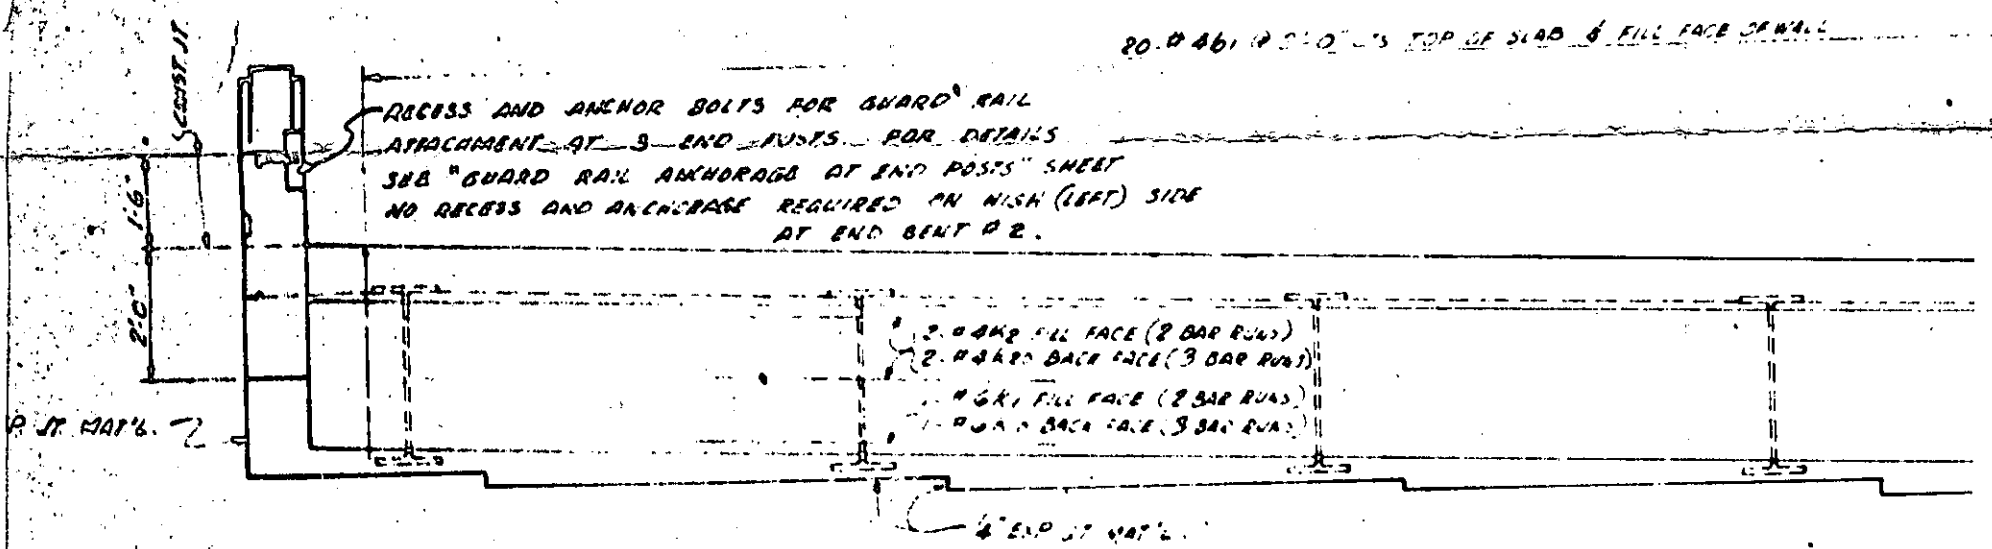 20 #4b1 @ 2'-0" CTS TOP OF SLAB & FILL FACE OF WALL
CONST. JT.
RECESS AND ANCHOR BOLTS FOR GUARD RAIL
ATTACHMENT AT 3 END POSTS FOR DETAILS
SEE "GUARD RAIL ANCHORAGE AT END POSTS" SHEET
NO RECESS AND ANCHORAGE REQUIRED ON HIGH (LEFT) SIDE
AT END BENT #2.
1'-6"
2'-0"
2-#4K2 FILL FACE (2 BAR RUNS)
2-#4K20 BACK FACE (3 BAR RUNS)
1-#6K1 FILL FACE (2 BAR RUNS)
BACK FACE (3 BAR RUNS)
P. JT. MAT'L.
EXP. JT. MAT'L.